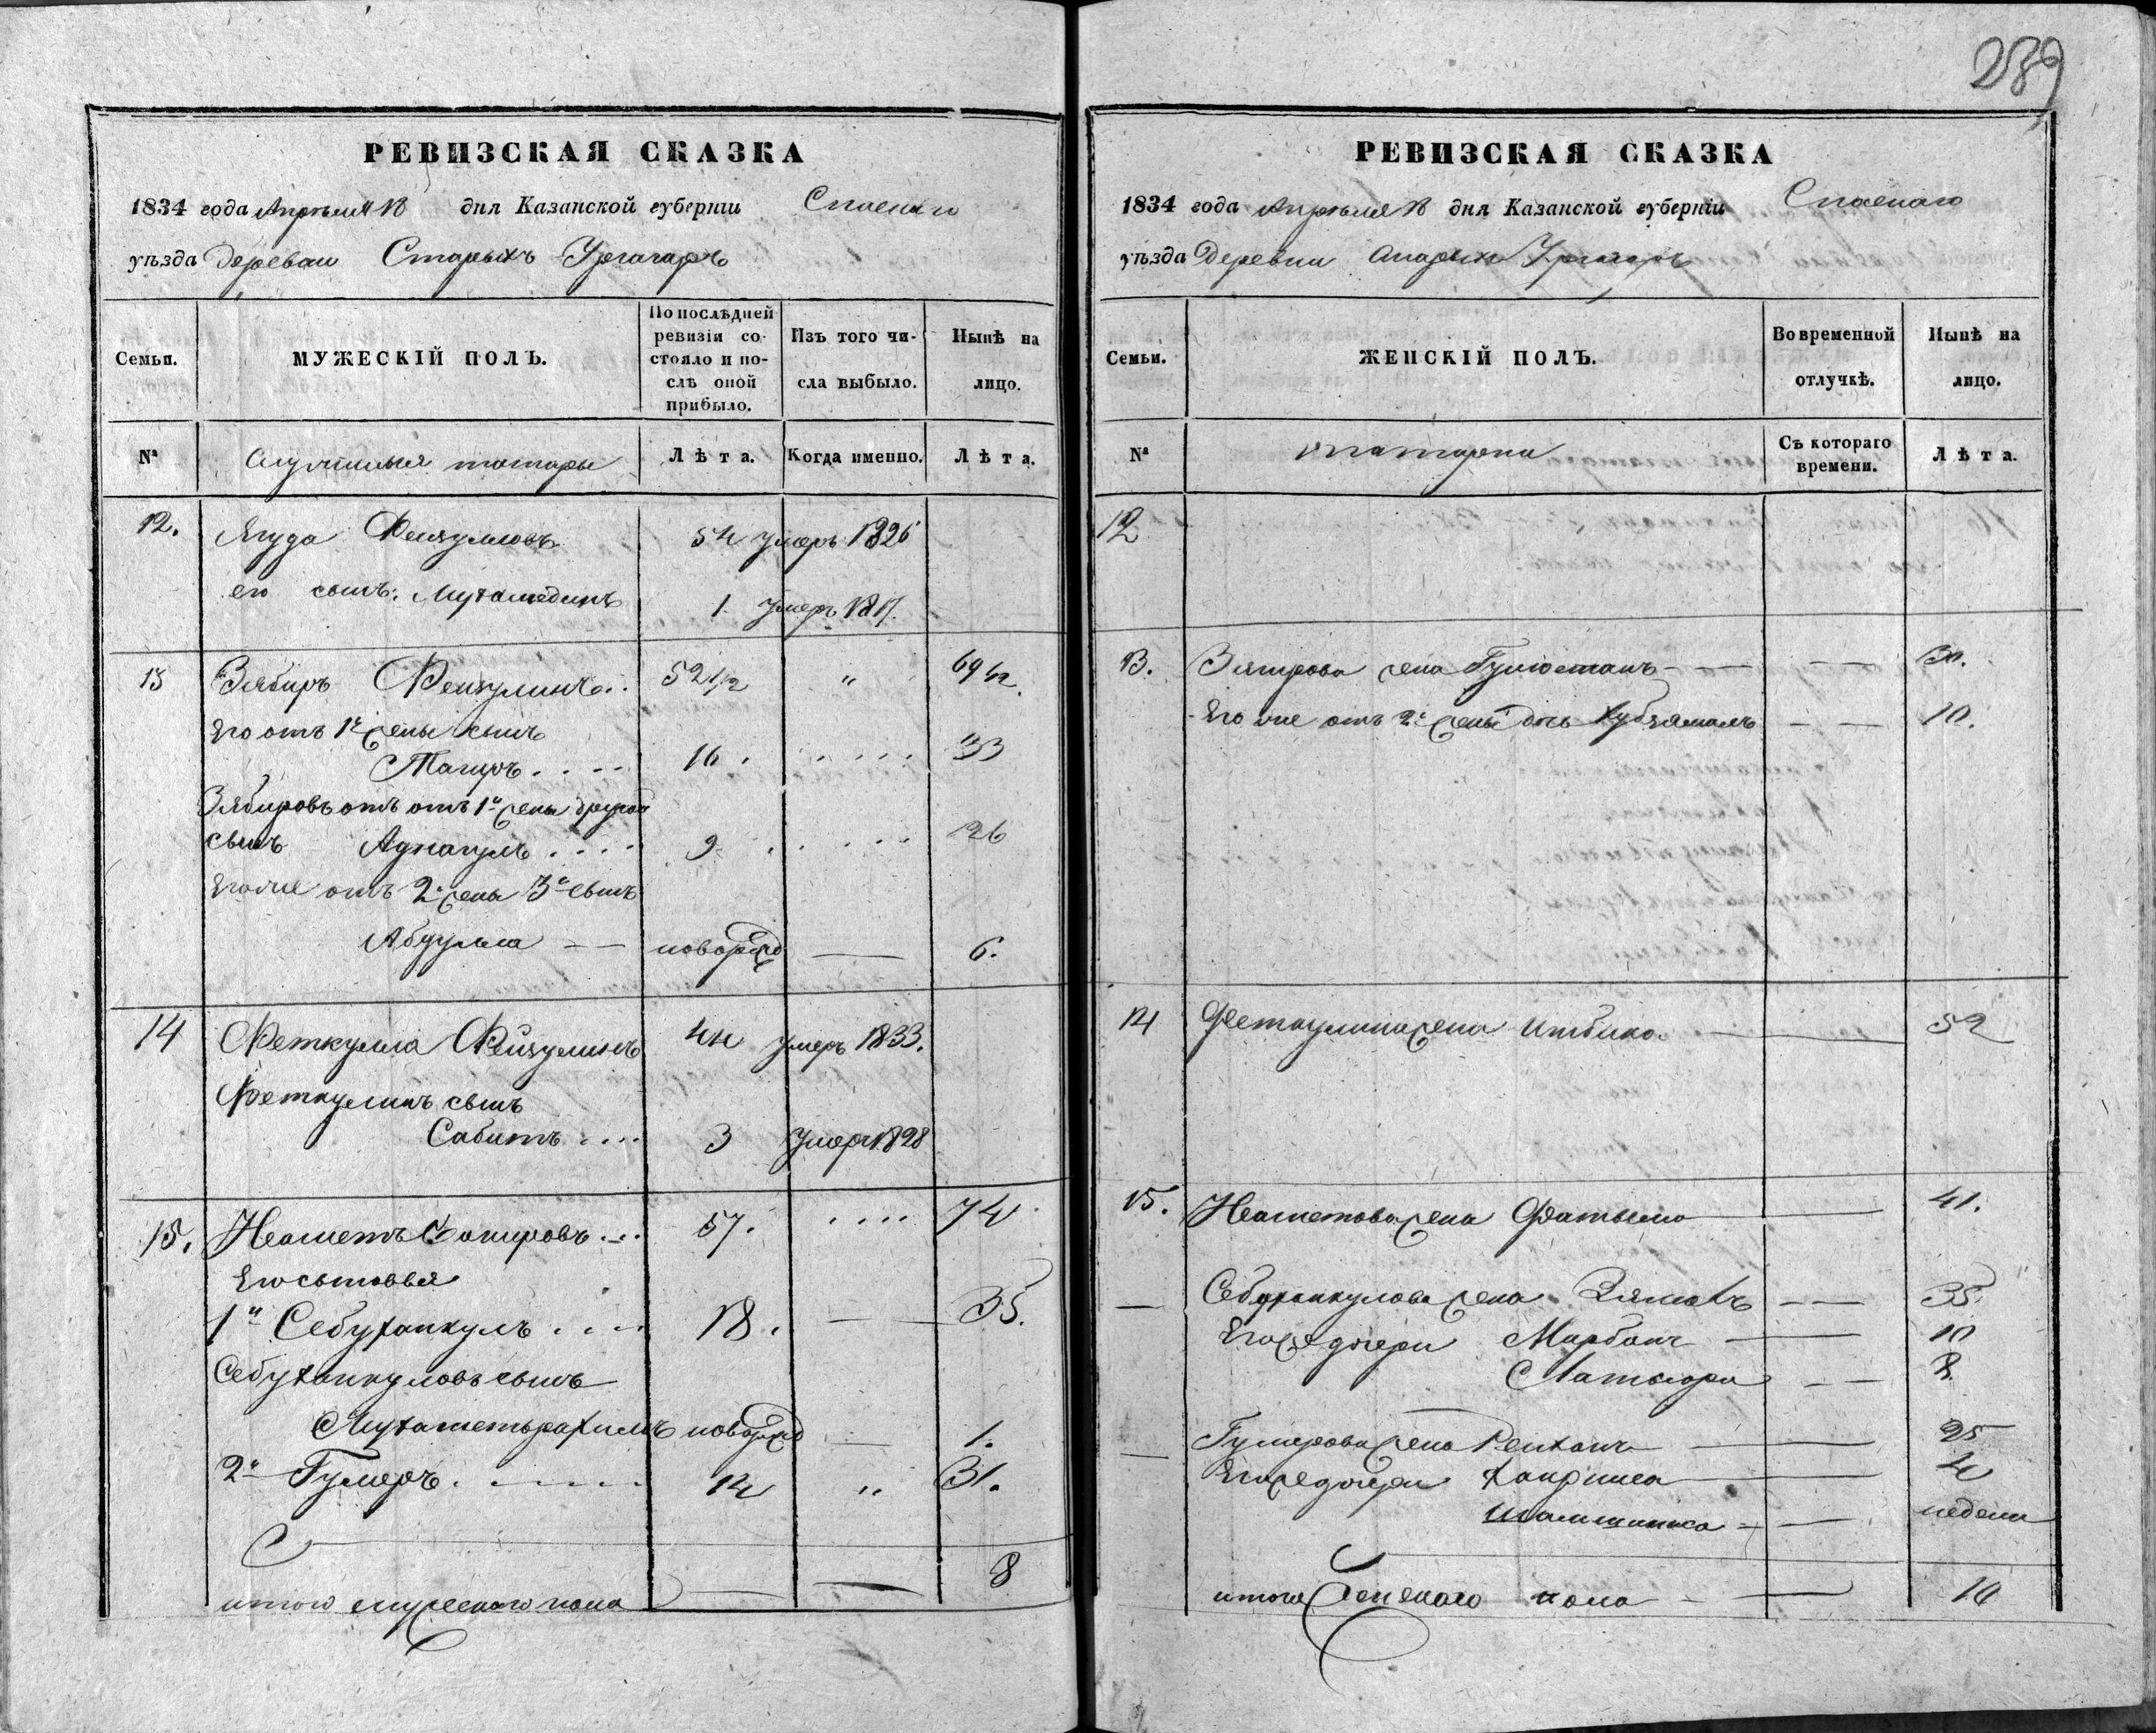 289
РЕВИЗСКАЯ СКАЗКА
1834 года Апреля 18 дня Казанской губерніи Спаскаго
уѣзда Деревни Старыхъ Ургагаръ
Семьи. МУЖЕСКІЙ ПОЛЪ. По послѣдней ревизіи состояло и послѣ оной прибыло. Изъ того числа выбыло. Нынѣ на лицо.
№ Служилыя татары Лѣта. Когда именно. Лѣта.
12. Ягуда Фейзулловъ 54 умеръ 1826
его сынъ: Мухамединъ 1 умеръ 1817.
13 Зябиръ Фейзулинъ 52 1/2 " 69 1/2.
Его отъ 1й жены сынъ
Тагиръ 16. 33
Зябировъ отъ 1й жены другой
сынъ Аднагулъ 9 26
Его же отъ 2й жены 3й сынъ
Абдулла новорожд 6.
14 Феткулла Фейзулинъ 44 умеръ 1833.
Феткулинъ сынъ
Сабитъ 3 умеръ 1828
15. Неаметъ Бакировъ 57. 74
Его сыновья
1й Себуханкулъ 18. 35.
Себуханкуловъ сынъ
Мухаметьрахимъ новорожд 1.
2й Гумеръ 14 " 31.
итого мужескаго пола 8
РЕВИЗСКАЯ СКАЗКА
1834 года Апреля 18 дня Казанской губерніи Спаскаго
уѣзда Деревни Старыхъ Ургагаръ
Семьи. ЖЕНСКІЙ ПОЛЪ. Во временной отлучкѣ. Нынѣ на лицо.
№ татарки Съ котораго времени. Лѣта.
12
13. Зябирова жена Гулюстанъ 30.
Его же отъ 2й жены дочь Хубзямалъ 10.
14 Феткулина жена Итбика 52
15. Неаметова жена Фатыма 41.
Себуханкулова жена 35.
Его же дочери Марбанъ 10
8.
Гумерова жена Рейханъ 25
Его же дочери 4
недели
итого женскаго пола 10